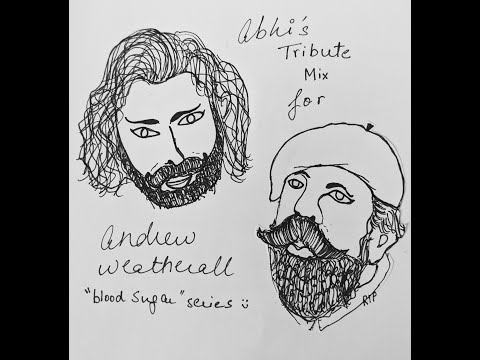 Abhi's
Tribute
Mix
for
Andrew
Weatherall
"blood Sugar" series :)
RIP